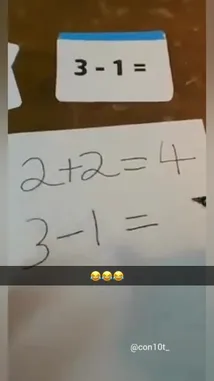 3 - 1 =
2+2=4
3-1=
😂😂😂
@con10t_